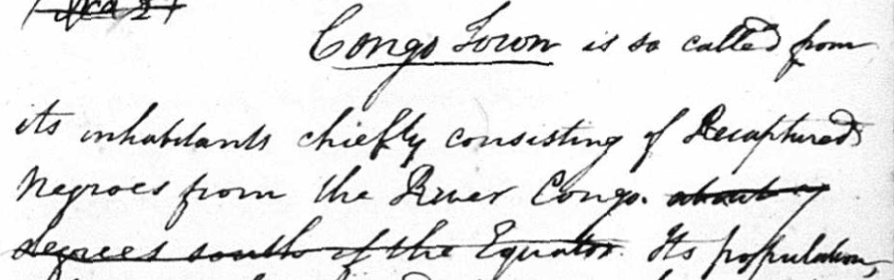 Congo Town is so called from
its inhabitants chiefly consisting of Recaptured
Negroes from the River Congo. about 7
degrees south of the Equator. Its population,